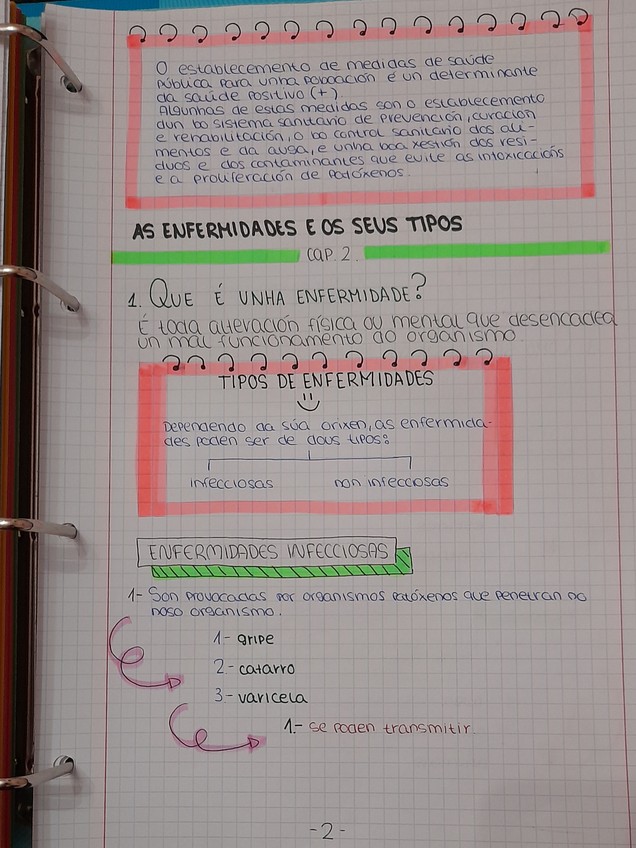 O establecemento de medidas de saúde
pública para unha poboación é un determinante
da saúde positivo (+)
Algunhas de estas medidas son o establecemento
dun bo sistema sanitario de prevención, curación
e rehabilitación, o bo control sanitario dos ali-
mentos e da auga, e unha boa xestión dos resi-
duos e dos contaminantes que evite as intoxicacións
e a proliferación de patóxenos.
AS ENFERMIDADES E OS SEUS TIPOS
CAP. 2.
1. QUE É UNHA ENFERMIDADE?
É toda alteración física ou mental que desencadea
un mal funcionamento do organismo.
TIPOS DE ENFERMIDADES
Dependendo da súa orixen, as enfermida-
des poden ser de dous tipos:
infecciosas non infecciosas
ENFERMIDADES INFECCIOSAS
1- Son provocadas por organismos patóxenos que penetran no
noso organismo.
1- gripe
2- catarro
3- varicela
1.- se poden transmitir
-2-